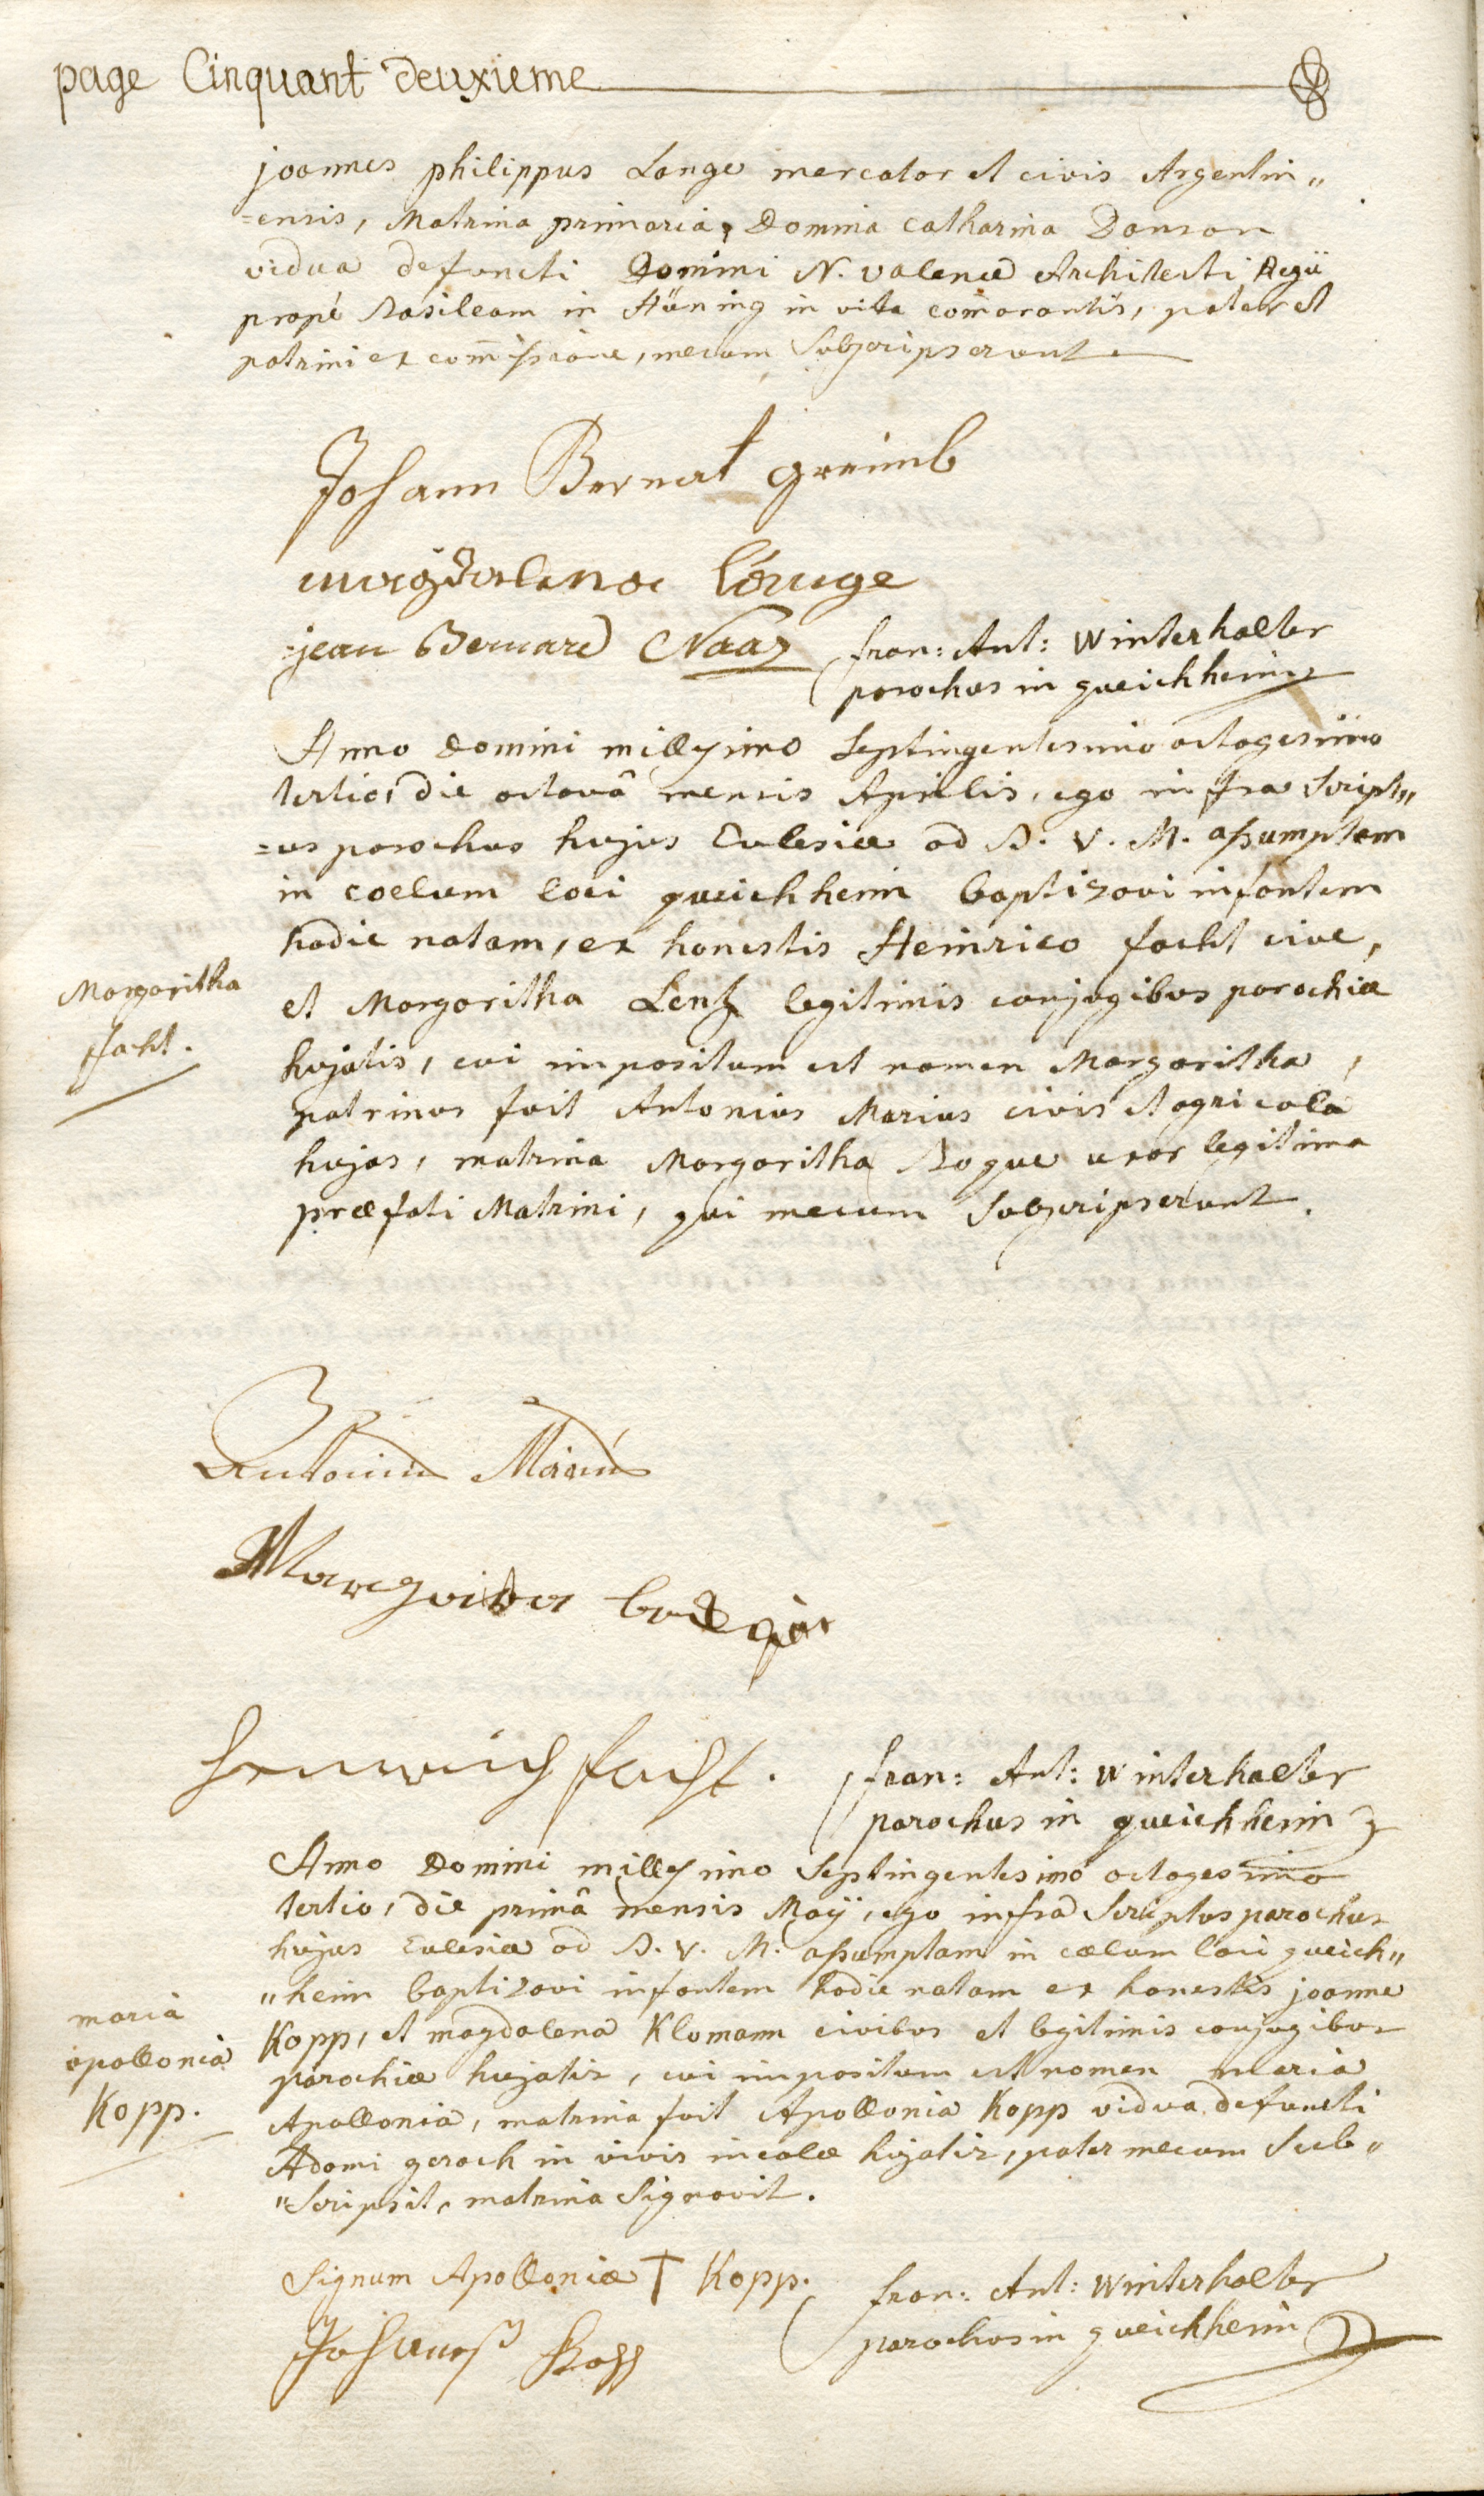 page Cinquant deuxieme
joannes philippus Lange mercator et civis Argentin„
=ensis, Matrina primaria, Domina Catharina Danson
vidua defuncti Domini N. valence Architecti Regii
propé Basileam in Hüning in vita com̄orantis, pater et
patrini ex com̄issione, mecum Subscripserunt
Johann Bernat greimb
magdalena Lange
jean Bernard Naaz
fran: Ant: Winterhalter
parochus in queichheim
Anno Domini millesimo Septingentesimo octogesimo
tertio, die octavâ mensis Aprilis, ego infra Script„
=us parochus hujus Eccłesiæ ad B. V. M. assumptam
in coelum loci queichheim baptizavi infantem
hodie natam, ex honestis Heinrico facht cive,
et Margaritha Lentz legitimis conjugibus parochiæ
hujatis, cui impositum est nomen Margaritha,
patrinus fuit Antonius Marius civis et agricola
hujas, matrina Margaritha Bogue uxor legitima
præfati Matrini, qui mecum Subscripserunt.
Margaritha
facht.
Antonius Marius
Margrida
Heinrich facht.
fran: Ant: Winterhalter
parochus in queichheim
Anno Domini millesimo Septingentesimo octogesimo
tertio, die primâ mensis Maÿ, ego infra Scriptus parochus
hujus Ecclesiæ ad B. V. M. assumptam in cœlum loci queich„
„heim baptizavi infantem hodie natam ex honestis joanne
Kopp, et magdalena Klomann civibus et legitimis conjugibus
parochiæ hujatis, cui impositum est nomen maria
Apollonia, matrina fuit Apollonia Kopp vidua defuncti
Adami gerach in vivis incolæ hujatis, pater mecum Sub„
„Scripsit, matrina Signavit.
maria
apollonia
Kopp.
Signum Apolloniæ † Kopp.
Johanes Kopp
fran: Ant: Winterhalter
parochus in queichheim